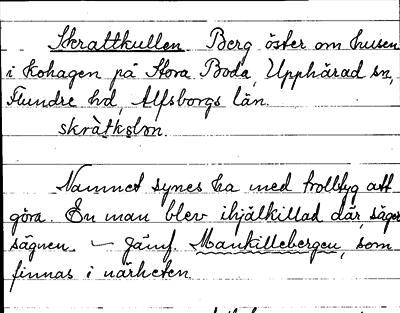 Skrattkullen Berg öster om husen
i Kohagen på Stora Boda, Upphärad sn,
Flundre hd, Älfsborgs län.
skràtkslɔn.
Namnet synes ha med trolltyg att
göra. En man blev ihjälkillad där, säger
sägnen. – Jämf. Mankillebergen, som
finnas i närheten.